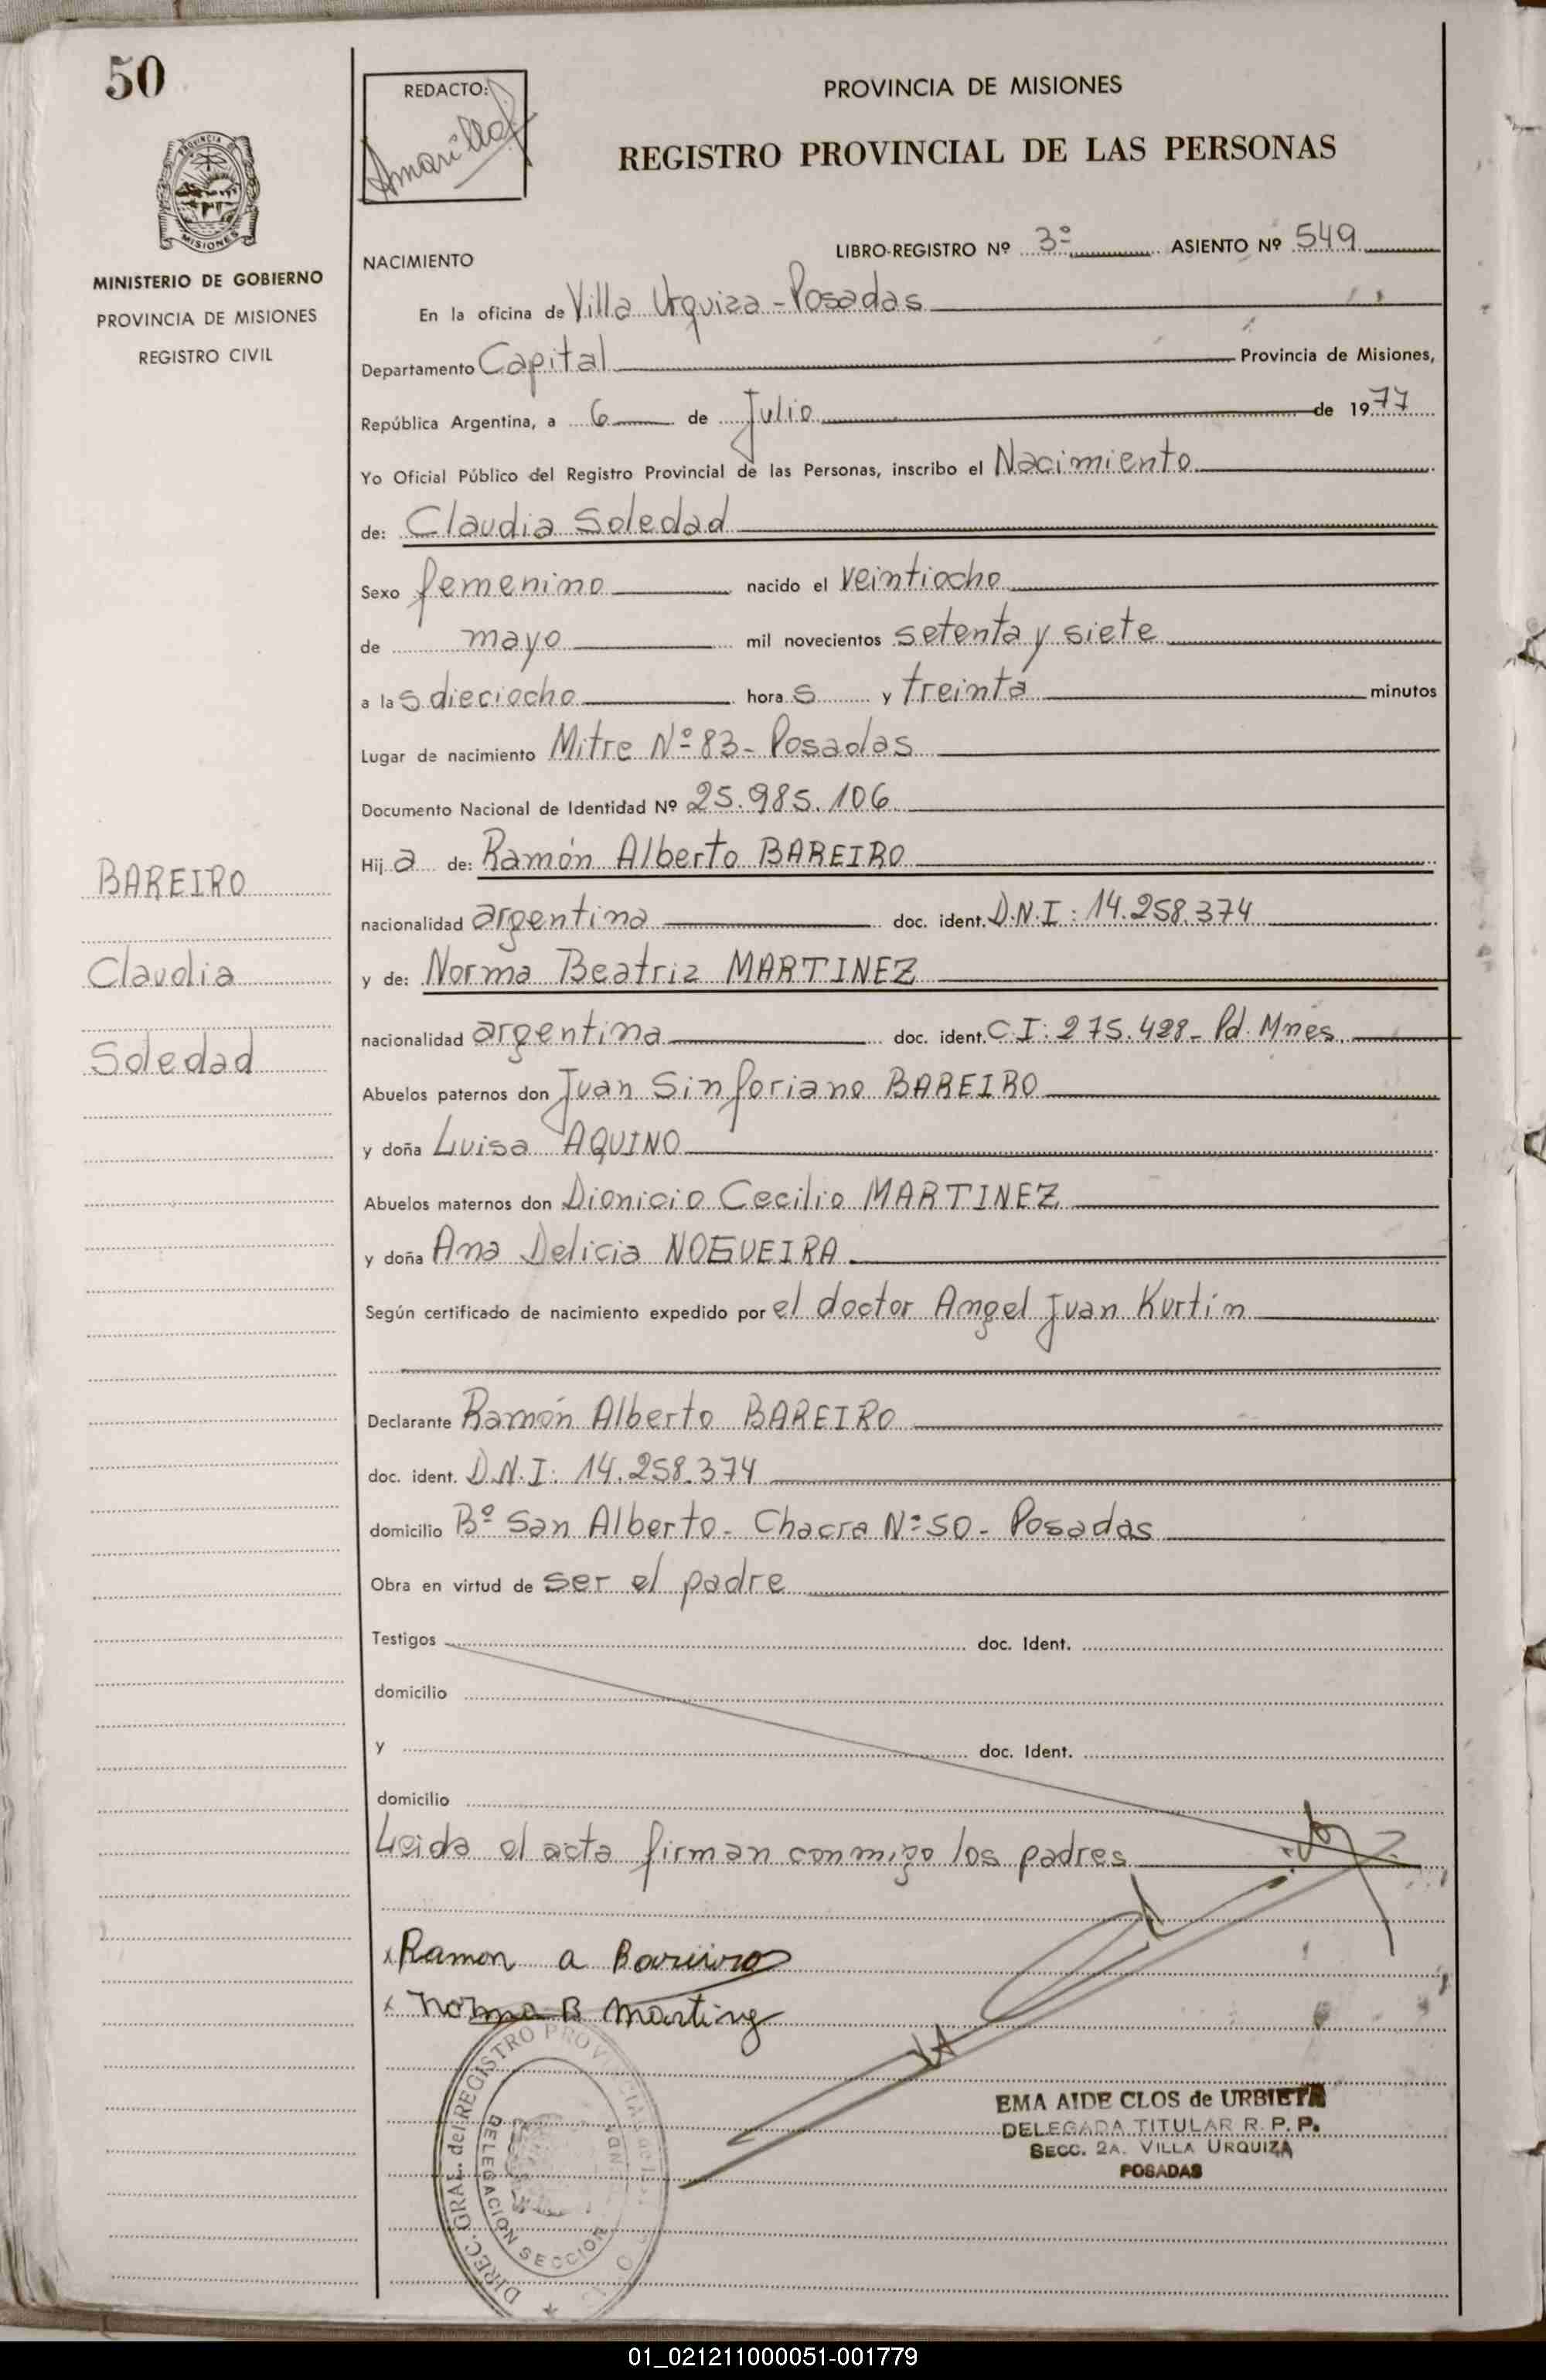 50
REDACTO:
Amarilla
PROVINCIA DE MISIONES
REGISTRO PROVINCIAL DE LAS PERSONAS
PROVINCIA
MISIONES
MINISTERIO DE GOBIERNO
PROVINCIA DE MISIONES
REGISTRO CIVIL
LIBRO-REGISTRO Nº 3º ASIENTO Nº 549
NACIMIENTO
En la oficina de Villa Urquiza - Posadas
Departamento Capital Provincia de Misiones,
República Argentina, a 6 de Julio de 1977
Yo Oficial Público del Registro Provincial de las Personas, inscribo el Nacimiento
de: Claudia Soledad
Sexo femenino nacido el veintiocho
de mayo mil novecientos setenta y siete
a las dieciocho horas y treinta minutos
Lugar de nacimiento Mitre Nº 83 - Posadas
Documento Nacional de Identidad Nº 25.985.106
Hija de: Ramón Alberto BAREIRO
BAREIRO
nacionalidad argentina doc. ident. D.N.I: 14.258.374
Claudia
y de: Norma Beatriz MARTINEZ
nacionalidad argentina doc. ident. C.I: 275.428 - Pd. Mnes.
Soledad
Abuelos paternos don Juan Sinforiano BAREIRO
y doña Luisa AQUINO
Abuelos maternos don Dionicio Cecilio MARTINEZ
y doña Ana Delicia NOGUEIRA
Según certificado de nacimiento expedido por el doctor Angel Juan Kurtin
Declarante Ramón Alberto BAREIRO
doc. ident. D.N.I: 14.258.374
domicilio Bº San Alberto - Chacra Nº 50 - Posadas
Obra en virtud de ser el padre
Testigos doc. Ident.
domicilio
y doc. Ident.
domicilio
Leida el acta firman conmigo los padres
x Ramon a Bareiro
x Norma B Martinez
EMA AIDE CLOS de URBIETA
DELEGADA TITULAR R. P. P.
SECC. 2A. VILLA URQUIZA
POSADAS
DIREC. GRAL. del REGISTRO PROVINCIAL
DELEGACION SECCION
01_021211000051-001779